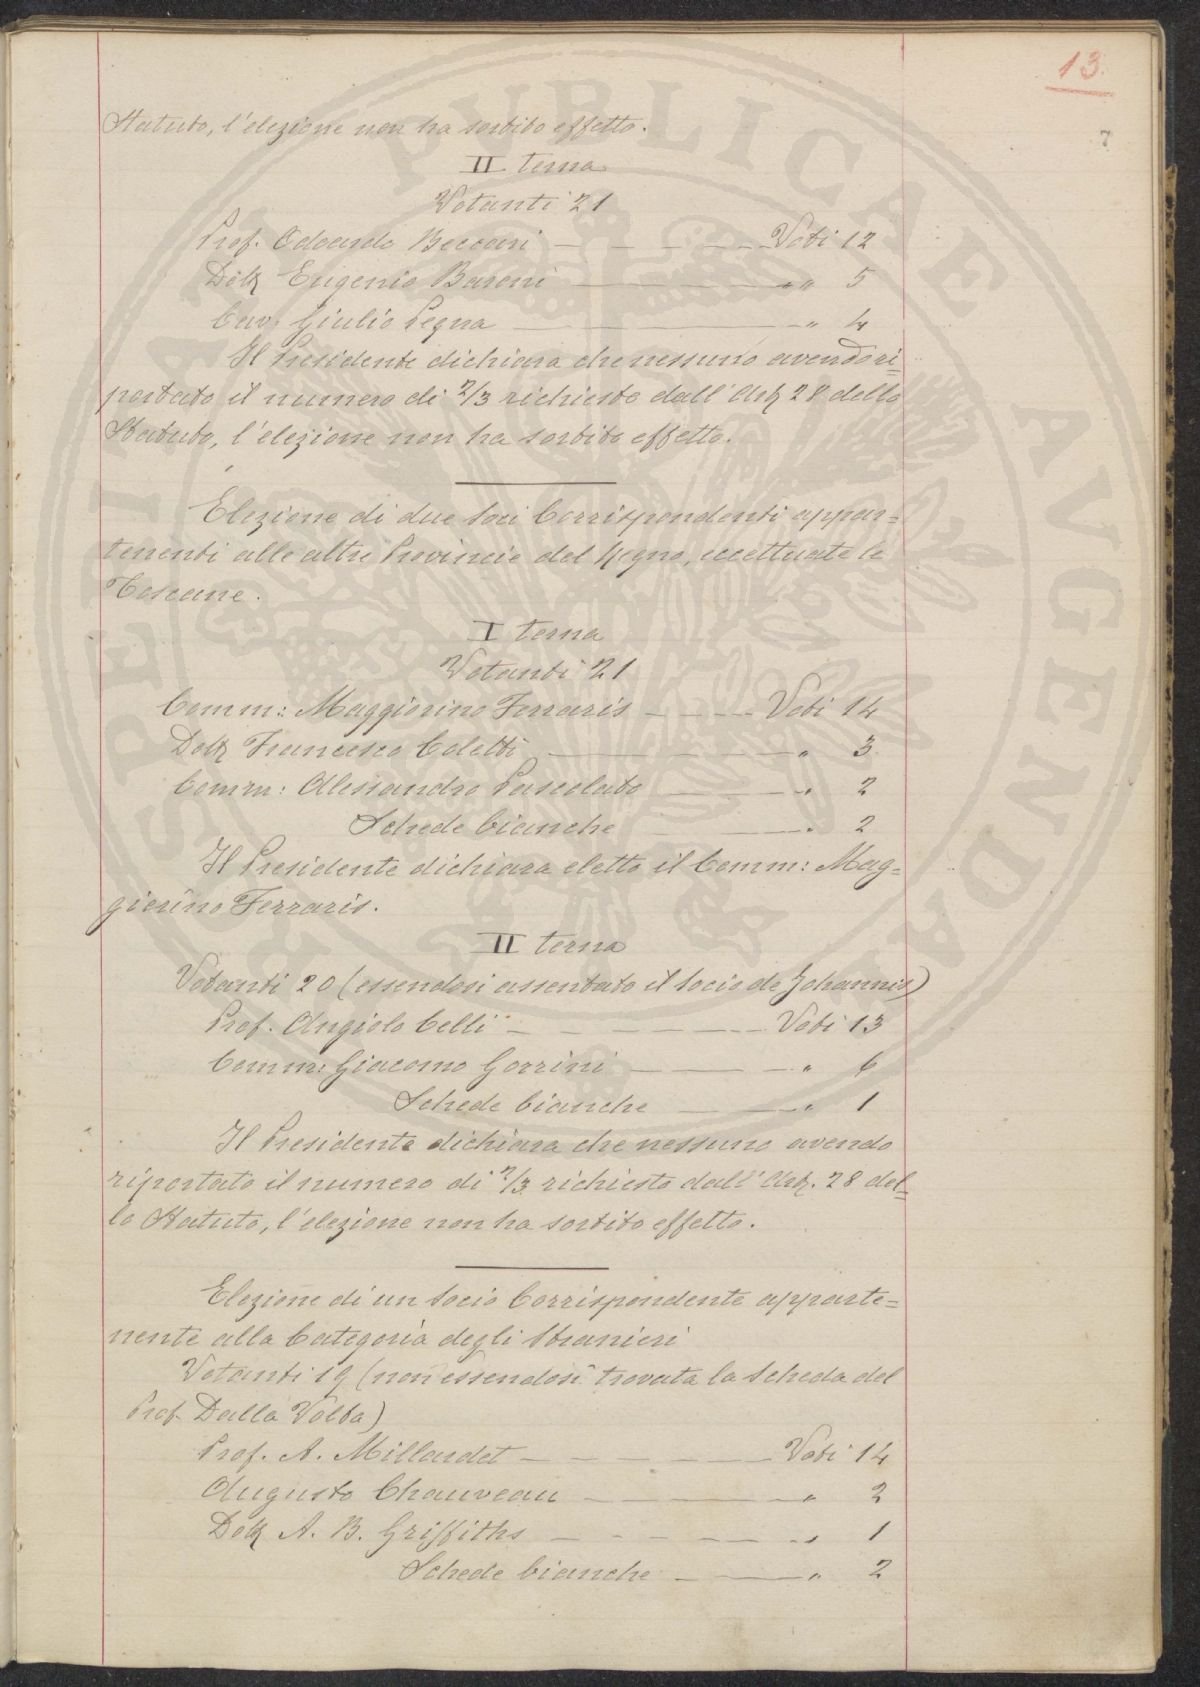 13.
7
Statuto, l'elezione non ha sortito effetto.
II terna
Votanti 21
Prof. Odoardo Beccari — — — — — Voti 12
Dott Eugenio Baroni — — — " 5
Cav: Giulio Pegna — — — " 4
Il Presidente dichiara che nessuno avendo ri=
portato il numero di 2/3 richiesto dall' Art 28 dello
Statuto, l'elezione non ha sortito effetto.
Elezione di due Soci Corrispondenti appar=
tenenti alle altre Provincie del Regno, eccettuate le
Toscane.
I terna
Votanti 21
Comm: Maggiorino Ferraris — — — Voti 14
Dott Francesco Coletti — — — " 3
Comm: Alessandro Pascolato — — " 2
Schede bianche — — " 2
Il Presidente dichiara eletto il Comm: Mag=
giorino Ferraris.
II terna
Votanti 20 (essendosi assentato il Socio de Johannis)
Prof. Angiolo Celli — — — — — Voti 13
Comm: Giacomo Gorrini — — — " 6
Schede bianche — — " 1
Il Presidente dichiara che nessuno avendo
riportato il numero di 2/3 richiesto dall' Art. 28 del=
lo Statuto, l'elezione non ha sortito effetto.
Elezione di un Socio Corrispondente apparte=
nente alla Categoria degli Stranieri
Votanti 19 (non essendosi trovata la scheda del
Prof. Dalla Volta)
Prof. A. Millardet — — — — — Voti 14
Augusto Chauveau — — — " 2
Dott A. B. Griffiths — — — — " 1
Schede bianche — — " 2
PUBLICAE AVGENDAE